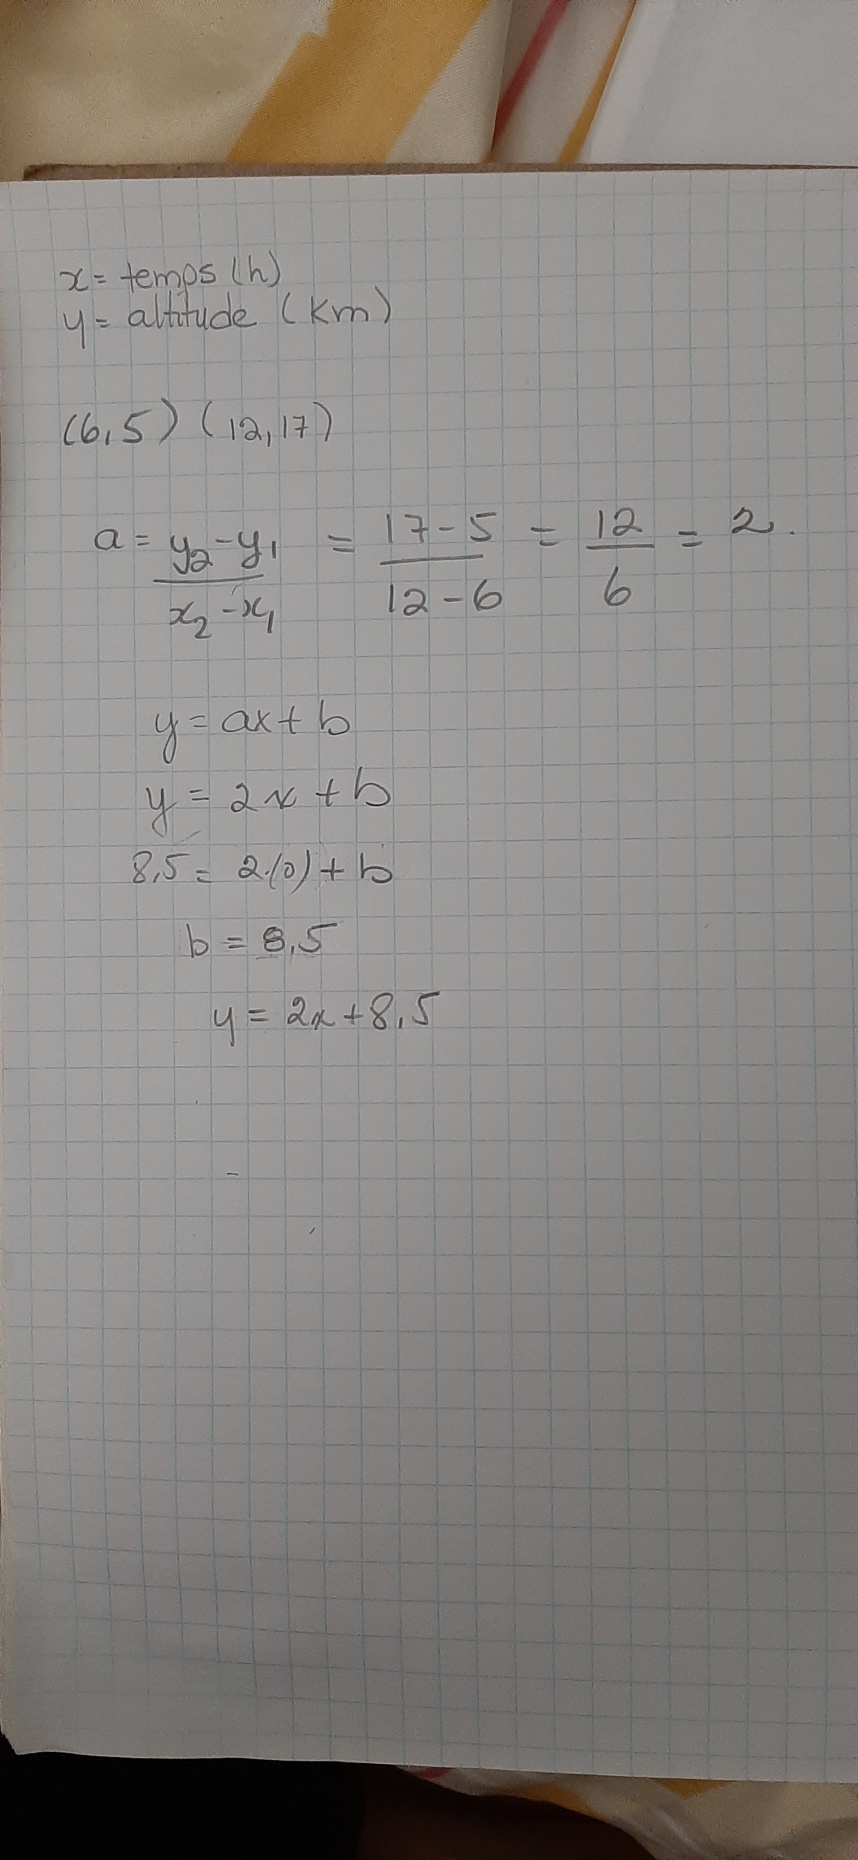 x = temps (h)
y = altitude (km)
(6,5) (12,17)
a = y₂-y₁ / x₂-x₁ = 17-5 / 12-6 = 12 / 6 = 2.
y = ax + b
y = 2x + b
8,5 = 2·(0) + b
b = 8,5
y = 2x + 8,5